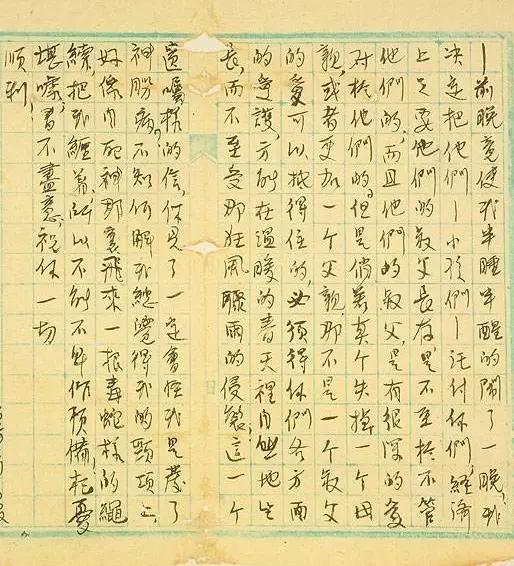 —前晚竟使我半睡半醒的闹了一晚,我
决定把他们—小孩们—托付你們,經濟
上只要他們的叔父長存,是不至於不管
他們的,而且他們的叔父,是有很深的愛
对於他們的。但是倘若真个失掉一个母
親,或者更加一个父親,那不是一个叔父
的愛可以抵得住的,必须得你們各方面
的愛護,方能在温暖的春天裡自然地生
長,而不至受那狂風驟雨的侵襲!這一个
遺囑樣的信,你見了一定會怪我是發了
神經病?不知何解,我總覺得我的頸項上,
好像自死神那裏飛來一根毒蛇樣的繩
索,把我纏着,所以不能不早作預備!杞憂
堪嚎,書不盡意,祝你一切
順利!